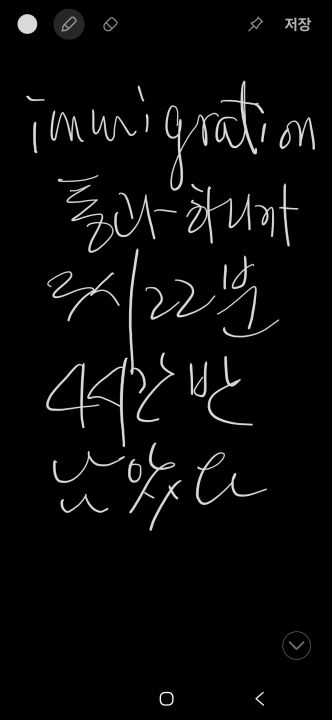 저장
immigration
통과하니까
즉시22분
4시간 반
남았다